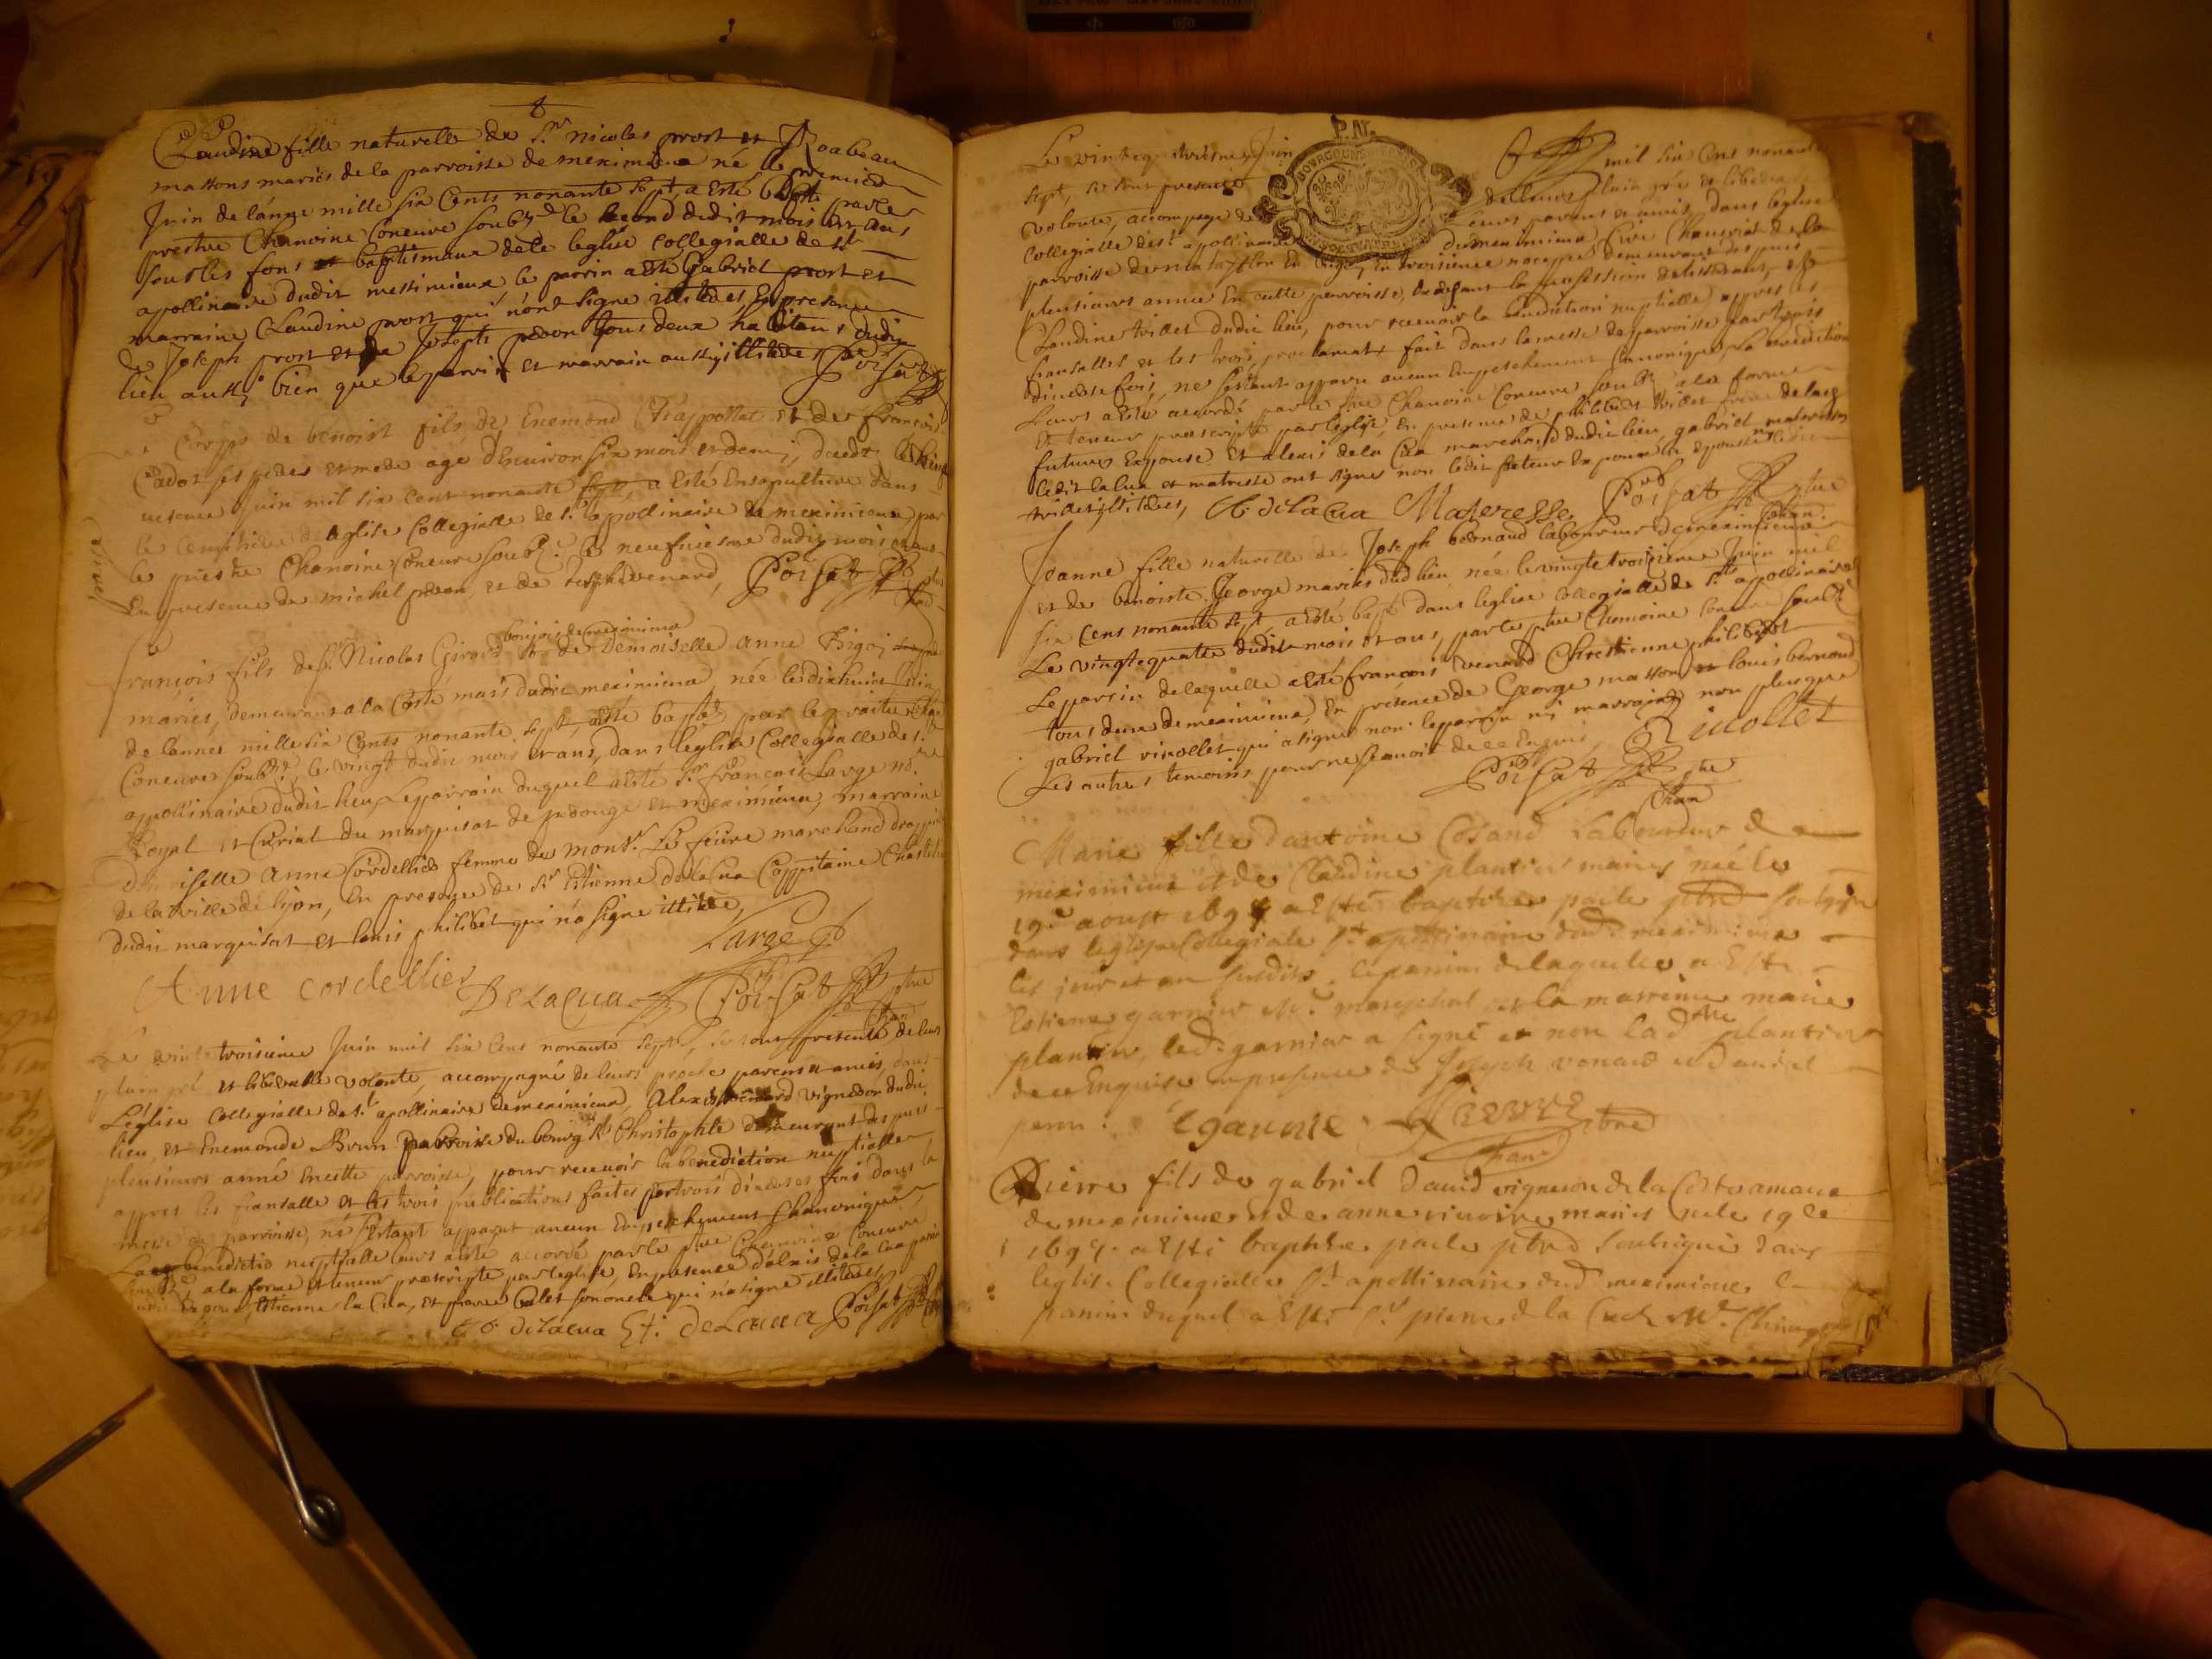 8
Claudine fille naturelle de Sr nicolas prost et
massons mariés de la parroisse de meximieux né le premier
Juin de lánnee mille six Cents nonante sept, a Esté bapte par le
prestre Chanoine Coneuré soubzne le second dudit mois et ans
sous les fons et baptismaux de la leglise Collegialle de St
apollinaire dudit messimieux le parrin a Esté Gabriel prost et
marraine Claudine prost qui nónt signe illiteres, En presence
de Joseph prost et de Joseph pédon tous deux habitans dudit
lieu aussy bien que le parrin et marrain aussy illiteres Poisat
Corps de benoist fils de Enemond Trappollat et de francoise
Cador ses peres et mere agé d'Enuiron six mois et demi, decede
Juin mil six cent nonante sept, a Esté Ensepulture dans
le Cemistiere de leglise Collegialle de St apollinaire de meximieux, par
le prestre Chanoine Coneure soubzne le neufuiesme dudit mois et ans
En presence de michel pédon et de Joseph venard, Poisat
boujois de meximieux
françois fils de Sr Nicolas Girard et de Demoiselle anne
mariés, demeurans a la Coste mais dudit meximieux, née le dixhuict Juin
de lannee mille six Cents nonante sept, a Esté bapte par le
Coneuré soubzne, le vingt dudit mois et ans, dans leglise Collegialle de St
appollinaire dudit lieu, Le parrain duquel a esté Sr françois Large nore
Royal et Curial du marquisat de et meximieux, marraine
demoiselle anne Cordellier femme de monsr Le feure marchand drappier
de la ville de lyon, En presence de Sr Estienne de la Cua Cappitaine Chastelain
dudit marquisat et louis philibet qui ná signe illitere,
Large
Anne cordellier
De La Cua Poisat ptre
Chan
Le vint troisieme Juin mil six Cens nonante sept, se sont presente de leurs
plain gré et libéralle volonte, accompagné de leurs proche parens et amis, dans
Léglise Collegialle de St apollinaire de meximieux, Alexis venard vigneron dudit
lieu, et Enemonde Brun parroisse du bourg St Christophle demeurant des puis
plusieurs anné En cette parroisse, pour receuoir la benediction nuptialle
appres les fiansalle et les trois publications faites par trois diuerses fois dans la
messe de parroisse, ne sestant apparut aucun Enpeschement Chanonique,
La benedictio nuptialle leurs a este accorde par le ptre Chanoine Coneure
a la forme et teneur prescripte par leglise, En presence dálexis de la Cua
Estienne la Cua, et qui ná signe illiteres
de la cua Eti De La Cua Poisat
P.N.
BOURGOGNE
Le vintequatriesme Juin mil six Cens nonante
sept, se sont presente de leurs plain gré et liberale
volonte, accompage de leurs parens et amis, dans léglise
Collegialle de St apollinaire de meximieux,
parroisse de En troisieme nocesse, demeurant des puis
plusieurs annee En cette parroisse, et
Claudine trillet dudit lieu, pour receuoir la benediction nuptialle appres les
fiansalles et les trois proclamats fait dans la messe de parroisse par trois
diuerse fois, ne sestant apparu aucun Empeschement Canonique, La benediction
Leurs a Esté accordé par le ptre Chanoine Coneure soubzne a la forme
Et teneur prescripte par leglise, En presence de philibert trillet frere de la
future Expouse Et alexis de la Cua marchand dudit lieu, gabriel materesse
ledit la Cua et matresse ont signe non ledit
trillet illiteres, de La Cua Materesse Poisat ptre
Chan.
Jeanne fille naturelle de Joseph bernaud laboureur de meximieux
et de benoiste George mariés dud lieu née le vingte troisieme Juin mil
six Cens nonante sept a Esté bapte dans leglise Collegialle de St apollinaire
Le vingtequatte dudit mois et ans, par le ptre Chanoine Coneure soubzne
Le parrin de laquelle a Esté francois venard Chrestienne philibert
tous deux de meximieux, En présence de George masson et louis bernaud
gabriel viuollet qui a signe non le parrin ni marraine non plus que
Les autres temoins pour ne sçauoir de ce Enquis, Riuollet
Poisat ptre
Chan
Marie fille dantoine Cosand Laboureur de
meximieux et de Claudine plantier maries née le
19e aoust 1697 a Esté baptisée par le ptre soubsigné
dans leglise Collegiale St apollinaire dud. meximieux
les jour et an susdits. le parrin de laquelle a Esté
Estienne garnier Me mareschal et la marreine marie
plantier, led. garnier a signé et non lad plantier
de ce Enquise en presence de Joseph venard et daniel
peron. E garnie ptre
Chan
Pierre fils de gabriel Dauid vigneron de la Coste amane
de meximieux et de anne riuoire maries né le 19
1697. a Esté baptisé par le ptre soubsigné dans
leglise Collegialle St apollinaire dud meximieux le
parrin duquel a Esté Sr pierre de la Cua Me